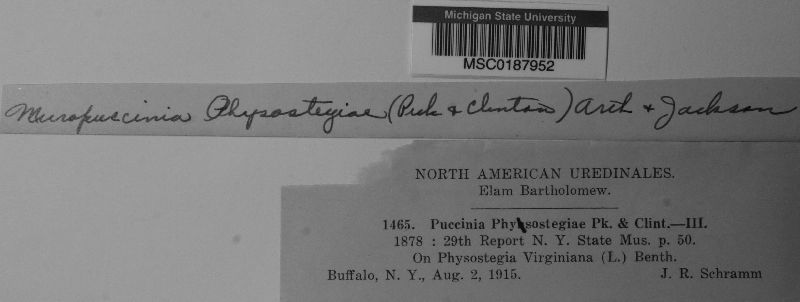 Michigan State University
MSC0187952
Micropuccinia Physostegiae (Peck & Clinton) Arth & Jackson
NORTH AMERICAN UREDINALES.
Elam Bartholomew.
1465. Puccinia Physostegiae Pk. & Clint.—III.
1878 : 29th Report N. Y. State Mus. p. 50.
On Physostegia Virginiana (L.) Benth.
Buffalo, N. Y., Aug. 2, 1915. J. R. Schramm